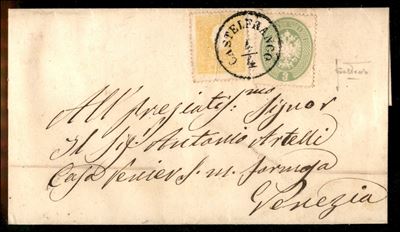 CASTELFRANCO
4/4
3
All'Pregiatis:mo Signor
Il Sig Antonio Artelli
Casa Venier S. M. formosa
Venezia